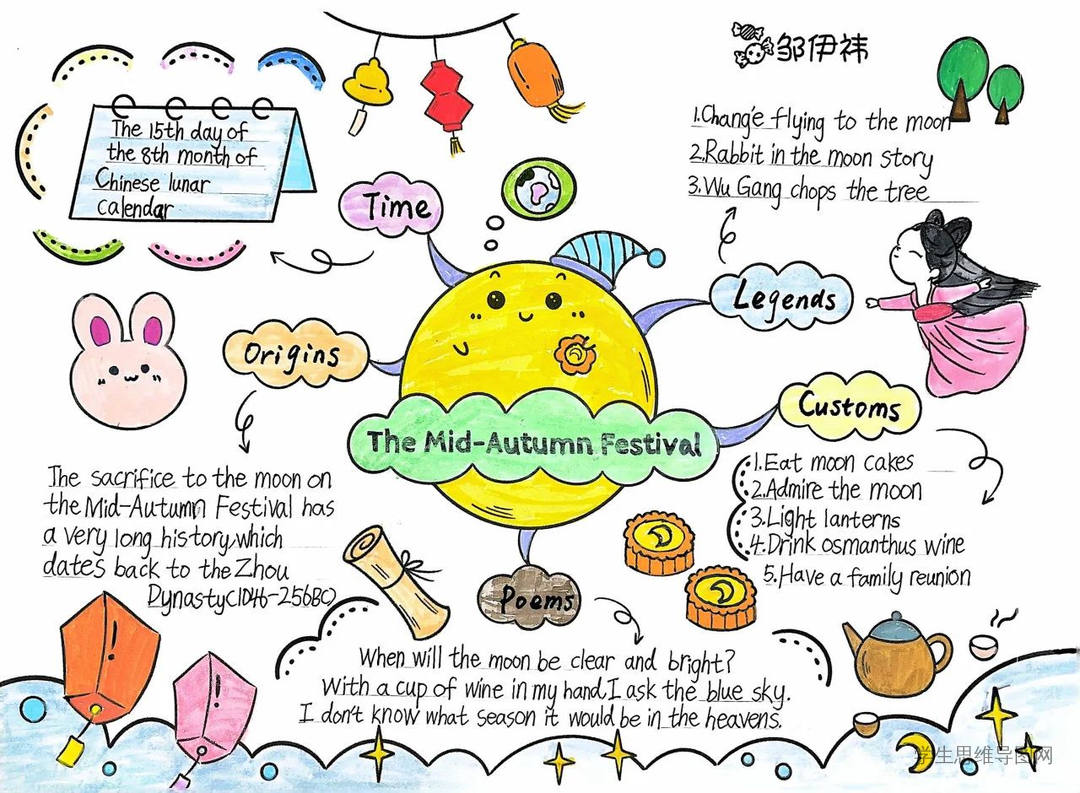 邹伊祎
The 15th day of
the 8th month of
Chinese lunar
calendar
Time
1.Chang'e flying to the moon
2.Rabbit in the moon story
3.Wu Gang chops the tree
Legends
Origins
Customs
The Mid-Autumn Festival
1.Eat moon cakes
2.Admire the moon
3.Light lanterns
4.Drink osmanthus wine
5.Have a family reunion
The sacrifice to the moon on
the Mid-Autumn Festival has
a very long history,which
dates back to the Zhou
Dynasty(1046-256BC)
Poems
When will the moon be clear and bright?
With a cup of wine in my hand,I ask the blue sky.
I don't know what season it would be in the heavens.
学生思维导图网